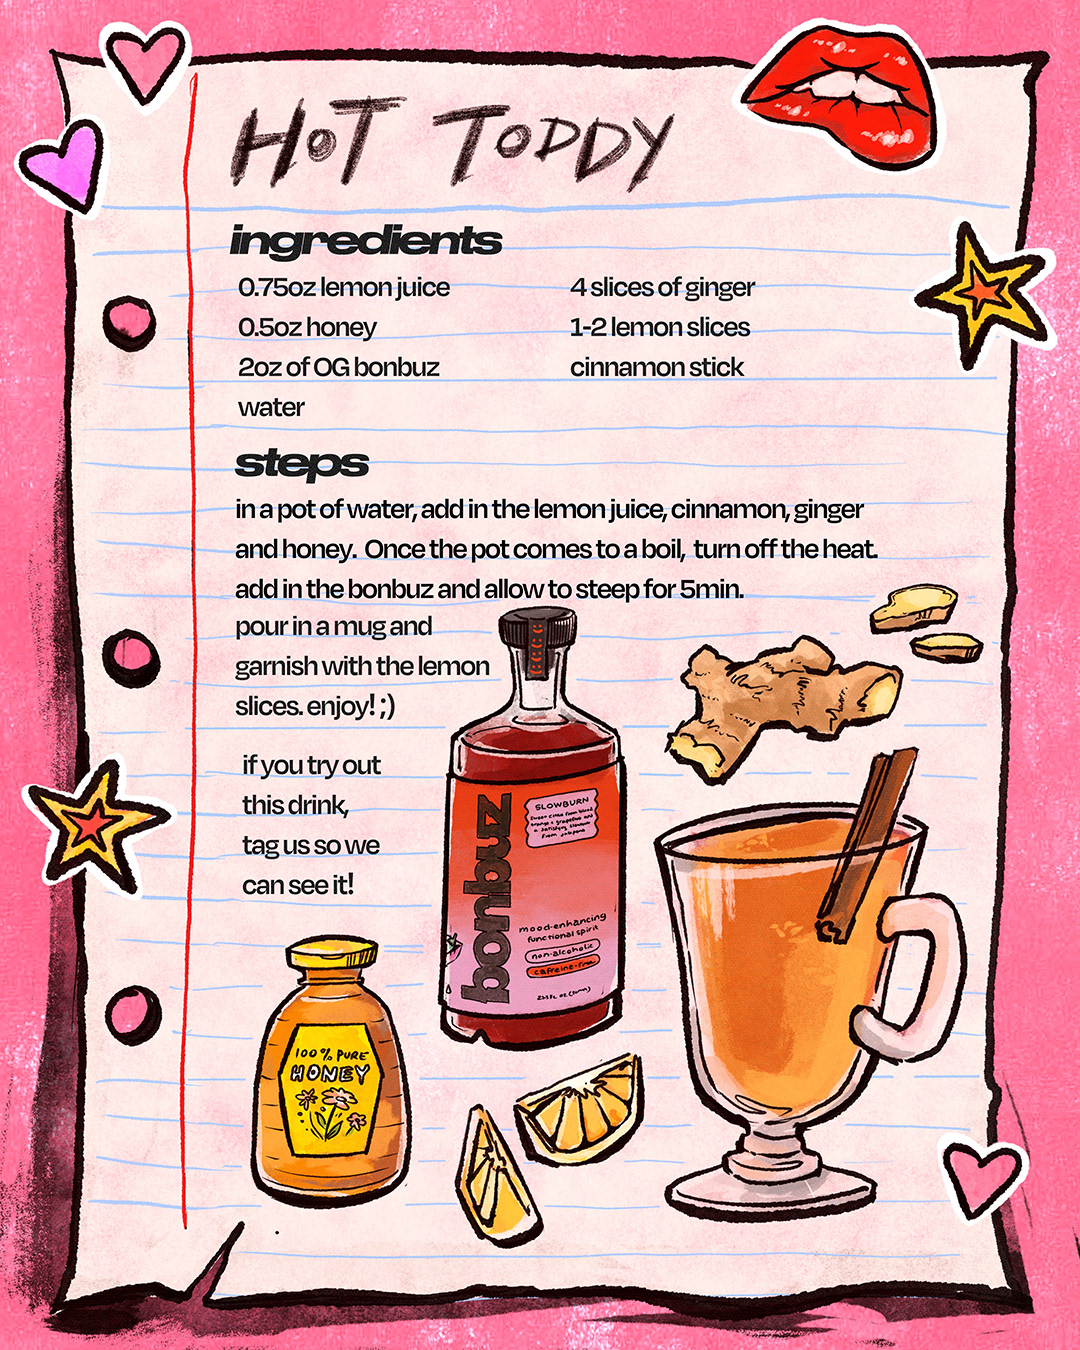 HOT TODDY
ingredients
0.75oz lemon juice
0.5oz honey
2oz of OG bonbuz
water
4 slices of ginger
1-2 lemon slices
cinnamon stick
steps
in a pot of water, add in the lemon juice, cinnamon, ginger
and honey. Once the pot comes to a boil, turn off the heat.
add in the bonbuz and allow to steep for 5min.
pour in a mug and
garnish with the lemon
slices. enjoy! ;)
if you try out
this drink,
tag us so we
can see it!
bonbuz
SLOWBURN
sweet citrus from blood
orange + grapefruit and
a satisfying flavour
from jalapeno
mood-enhancing
functional spirit
non-alcoholic
caffeine-free
100% PURE
HONEY